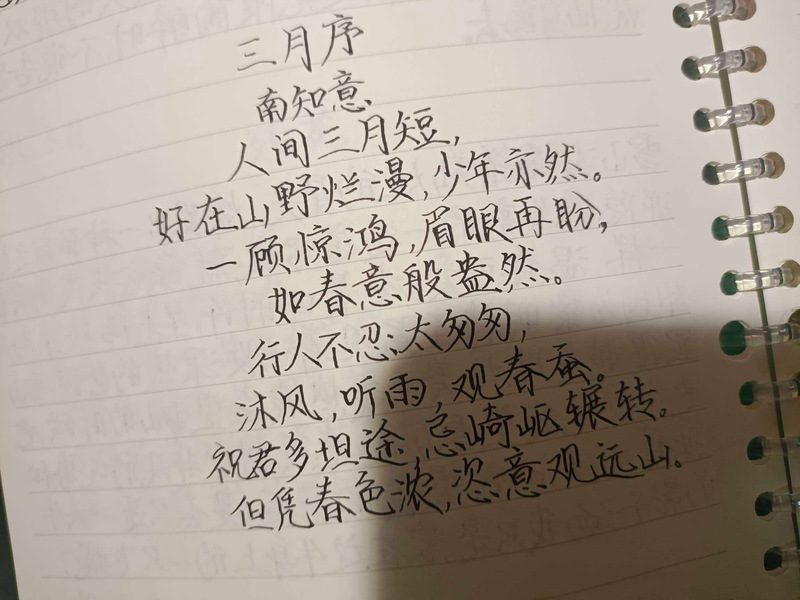 三月序
南知意
人间三月短，
好在山野烂漫，少年亦然。
一顾惊鸿，眉眼再盼，
如春意般盎然。
行人不忍太匆匆，
沐风，听雨，观春蚕。
祝君多坦途，忌崎岖辗转。
但凭春色浓，恣意观远山。